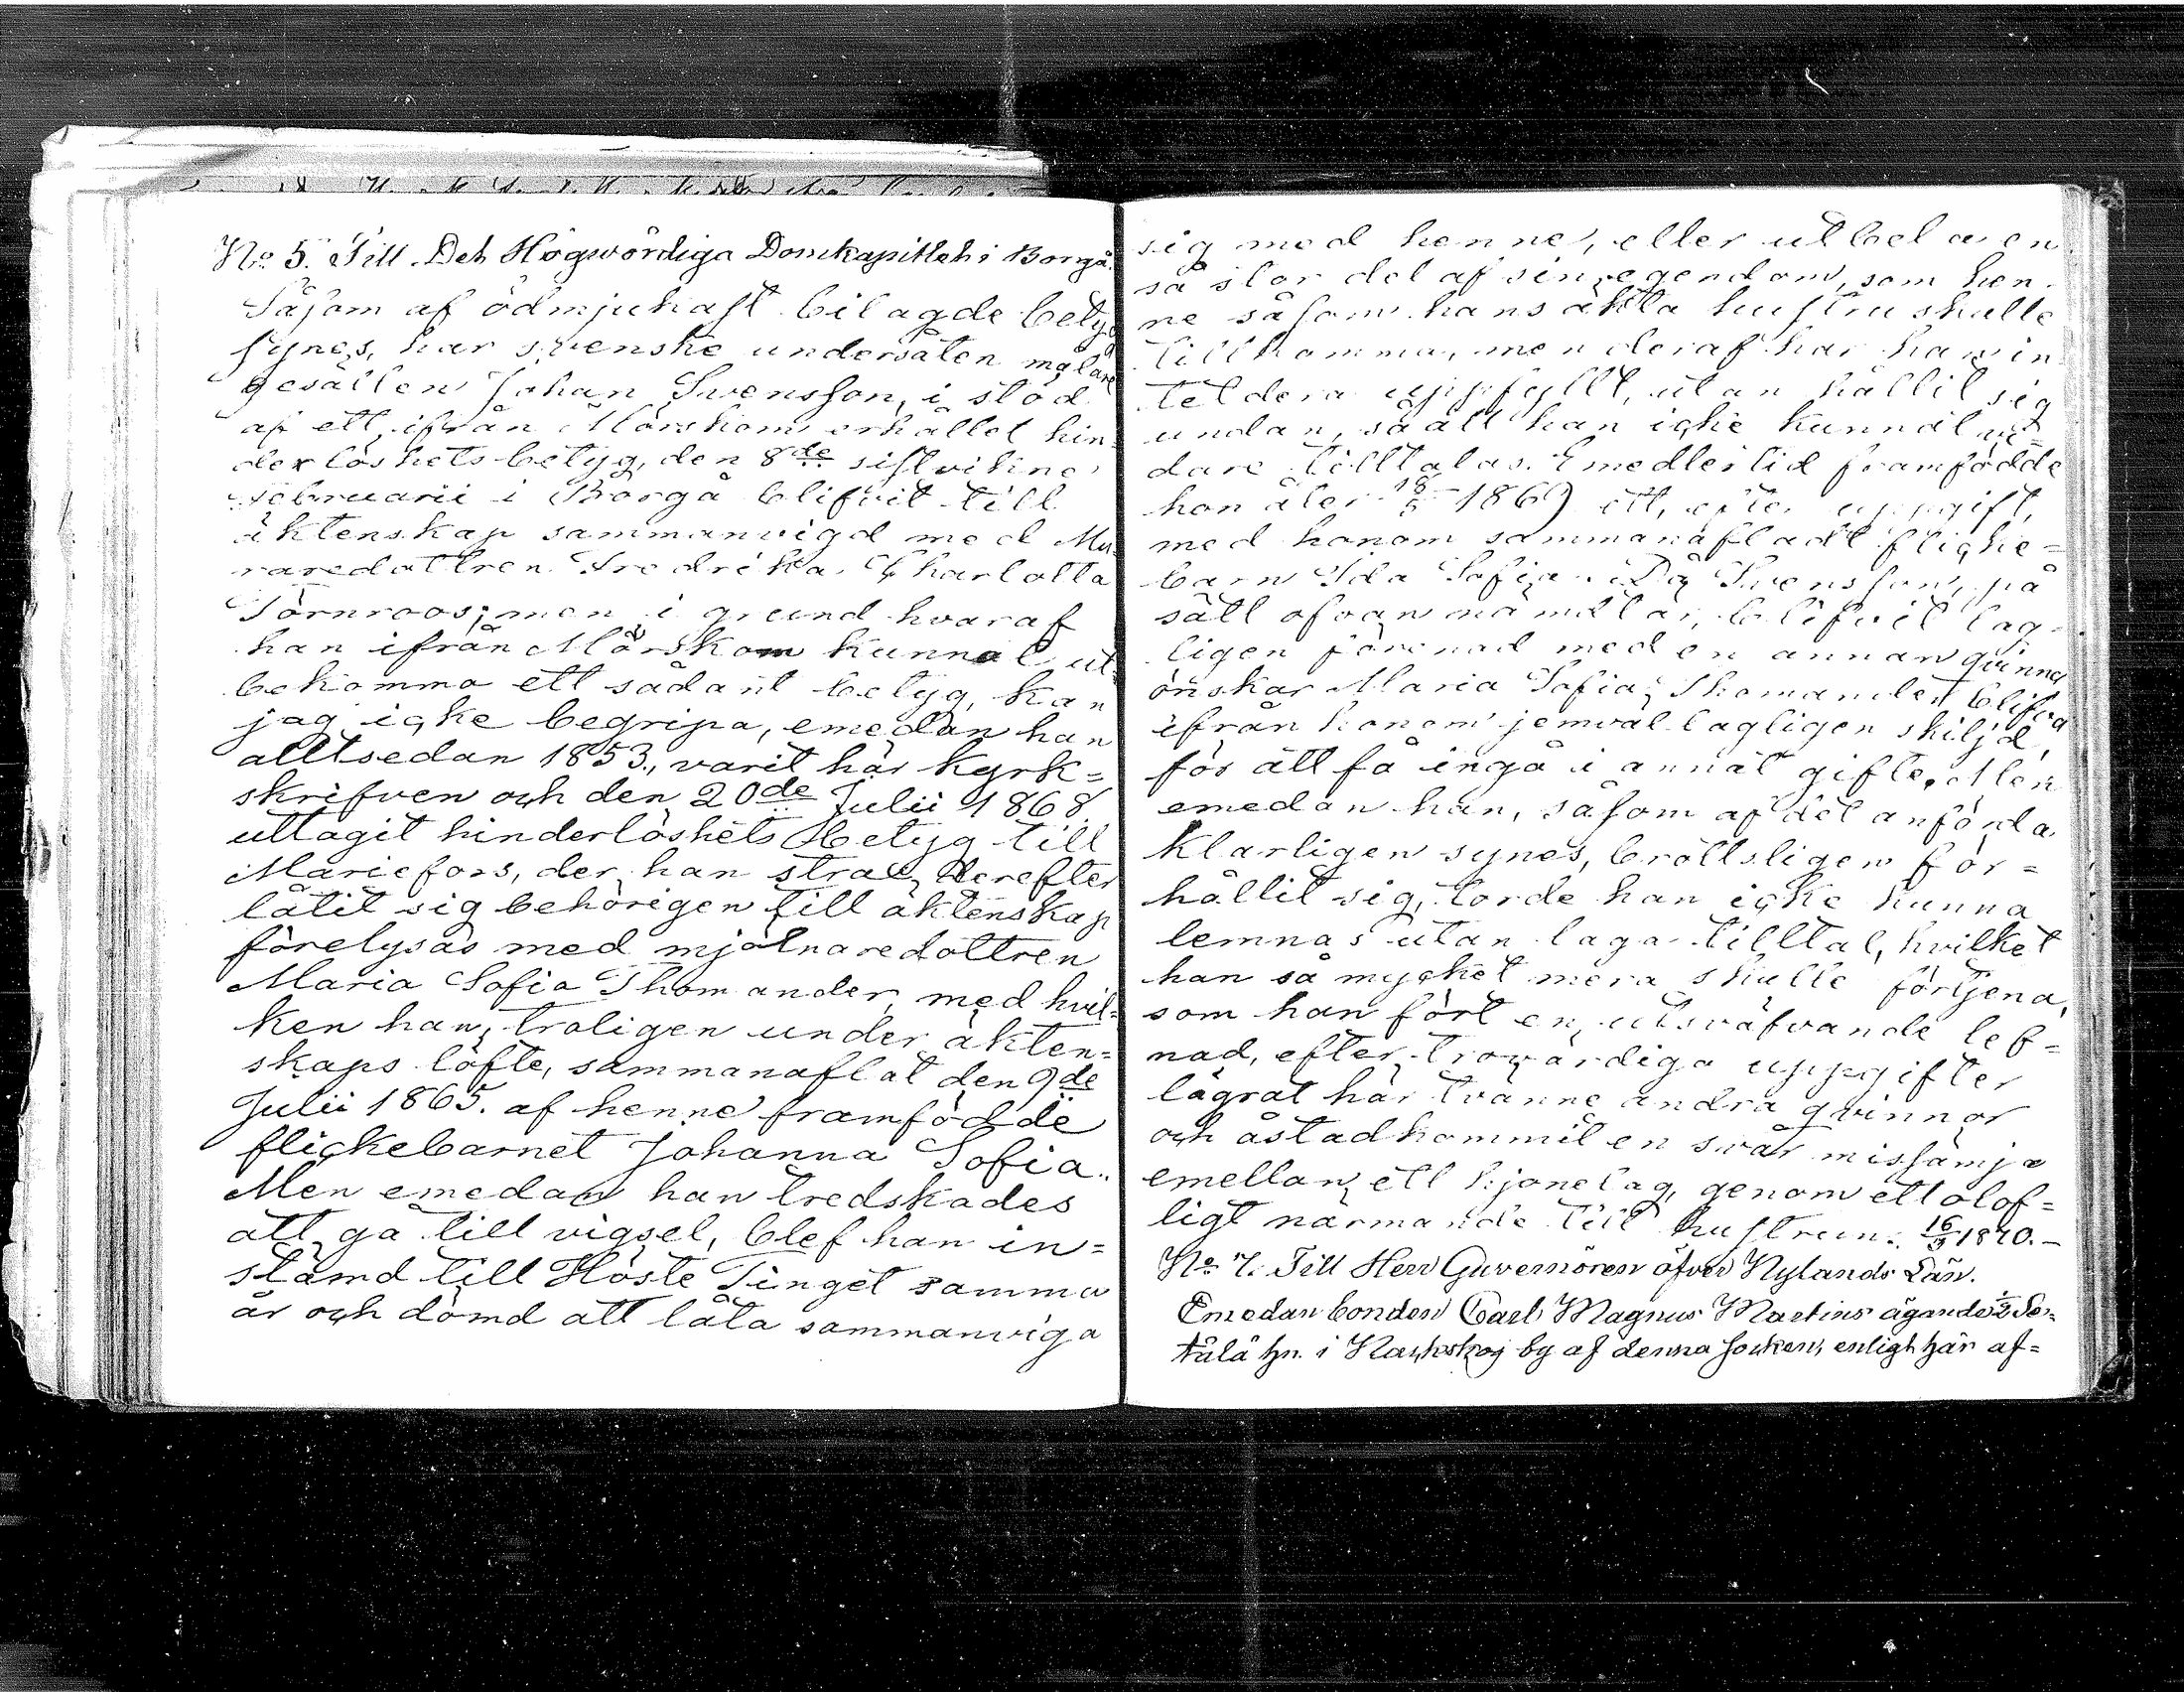 No 5. Till Det Högwördiga Domkapitlet i Borgå.
Såsom af ödmjukast bilagde betyg
synes, har svenske undersåten målare
gesällen Johan Svensson, i stöd
af ett ifrån Mörskom erhållet hin-
derlöshets betyg, den 8de sistvikne
Februarii i Borgå blifvit till
äktenskap sammanvigd med Mu-
raredottren Fredrika Charlotta
Törnroos; men i grund hvaraf
han ifrån Mörskom kunnat ut-
bekomma ett sådant betyg, kan
jag icke begripa, emedan han
alltsedan 1853., varit här kyrk=
skrifven och den 20de Julii 1868.
uttagit hinderlöshets betyg till
Mariefors, der han strax derefter
låtit sig behörigen till äktenskap
förelysas med mjölnaredottren
Maria Sofia Thomander, med hvil=
ken han, troligen under äkten=
skaps löfte, sammanaflat den 9de
Julii 1865. af henne framfödde
flickebarnet Johanna Sofia.
Men emedan han tredskades
att gå till vigsel, blef han in=
stämd till Höste Tinget samma
år och dömd att låta sammanviga
sig med henne, eller utbetala en
så stor del af sin egendom, som hen-
ne såsom hans äkta hustru skulle
tillkomma, men deraf har han in-
tetdera uppfyllt, utan hållit sig
undan, så att han icke kunnat vi-
dare tilltalas. Emedlertid framfödde
hon åter 18/5 1869 ett, efter uppgift,
med honom sammanafladt flicke=
barn Ida Sofia. Då Svensson, på
sätt ofvannämndt är, blifvit lag-
ligen förenad med en annan qvinna
önskar Maria Sofia Thomander blifva
ifrån honom jemväl lagligen skiljd,
för att få ingå i annat gifte. Men
emedan han, såsom af det anförda
klarligen synes, brottsligen för=
hållit sig, torde han icke kunna
lemnas utan laga tilltal, hvilket
han så mycket mera skulle förtjena,
som han fört en utsväfvande lef=
nad, efter trovärdiga uppgifter
lägrat här tvänne andra qvinnor
och åstadkommit en svår missämja
emellan ett hjonelag, genom ett olof=
ligt närmande till hustrun. 16/3 1870.—
No 7. Till Herr Guvernören öfver Nylands Län.
Emedan bonden Carl Magnus Martins ägande 1/2 Sen-
tälä hn. i by af denna socken, enligt här af=